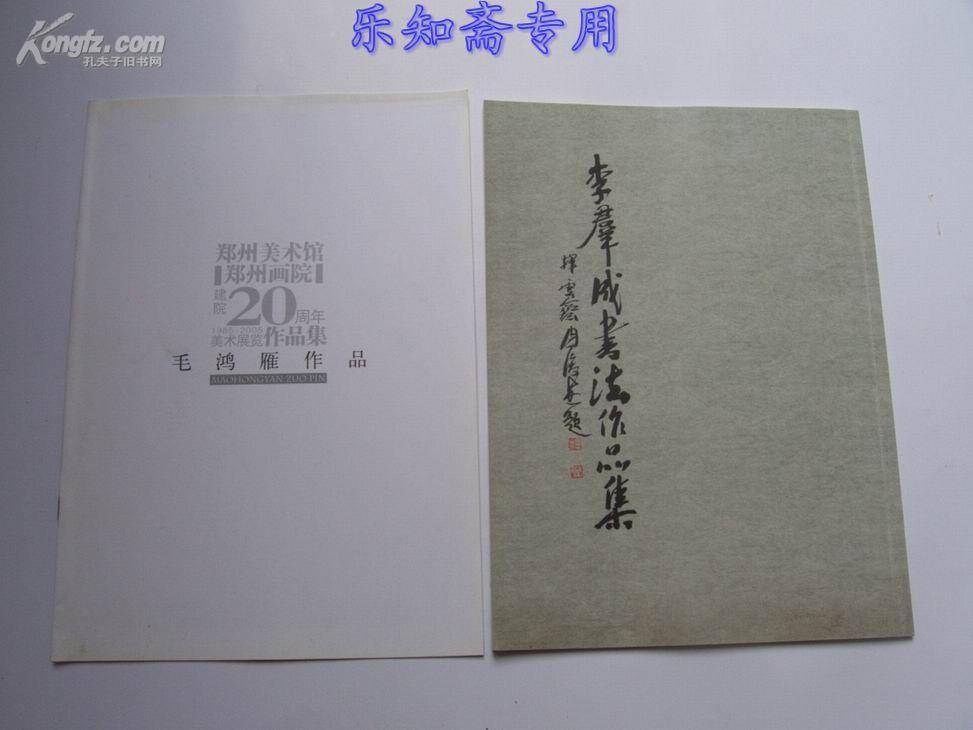 Kongfz.com
孔夫子旧书网
乐知斋专用
郑州美术馆
郑州画院
建院20周年
1985-2005
美术展览作品集
毛鸿雁作品
MAOHONGYAN ZUO PIN
李羣成书法作品集
題